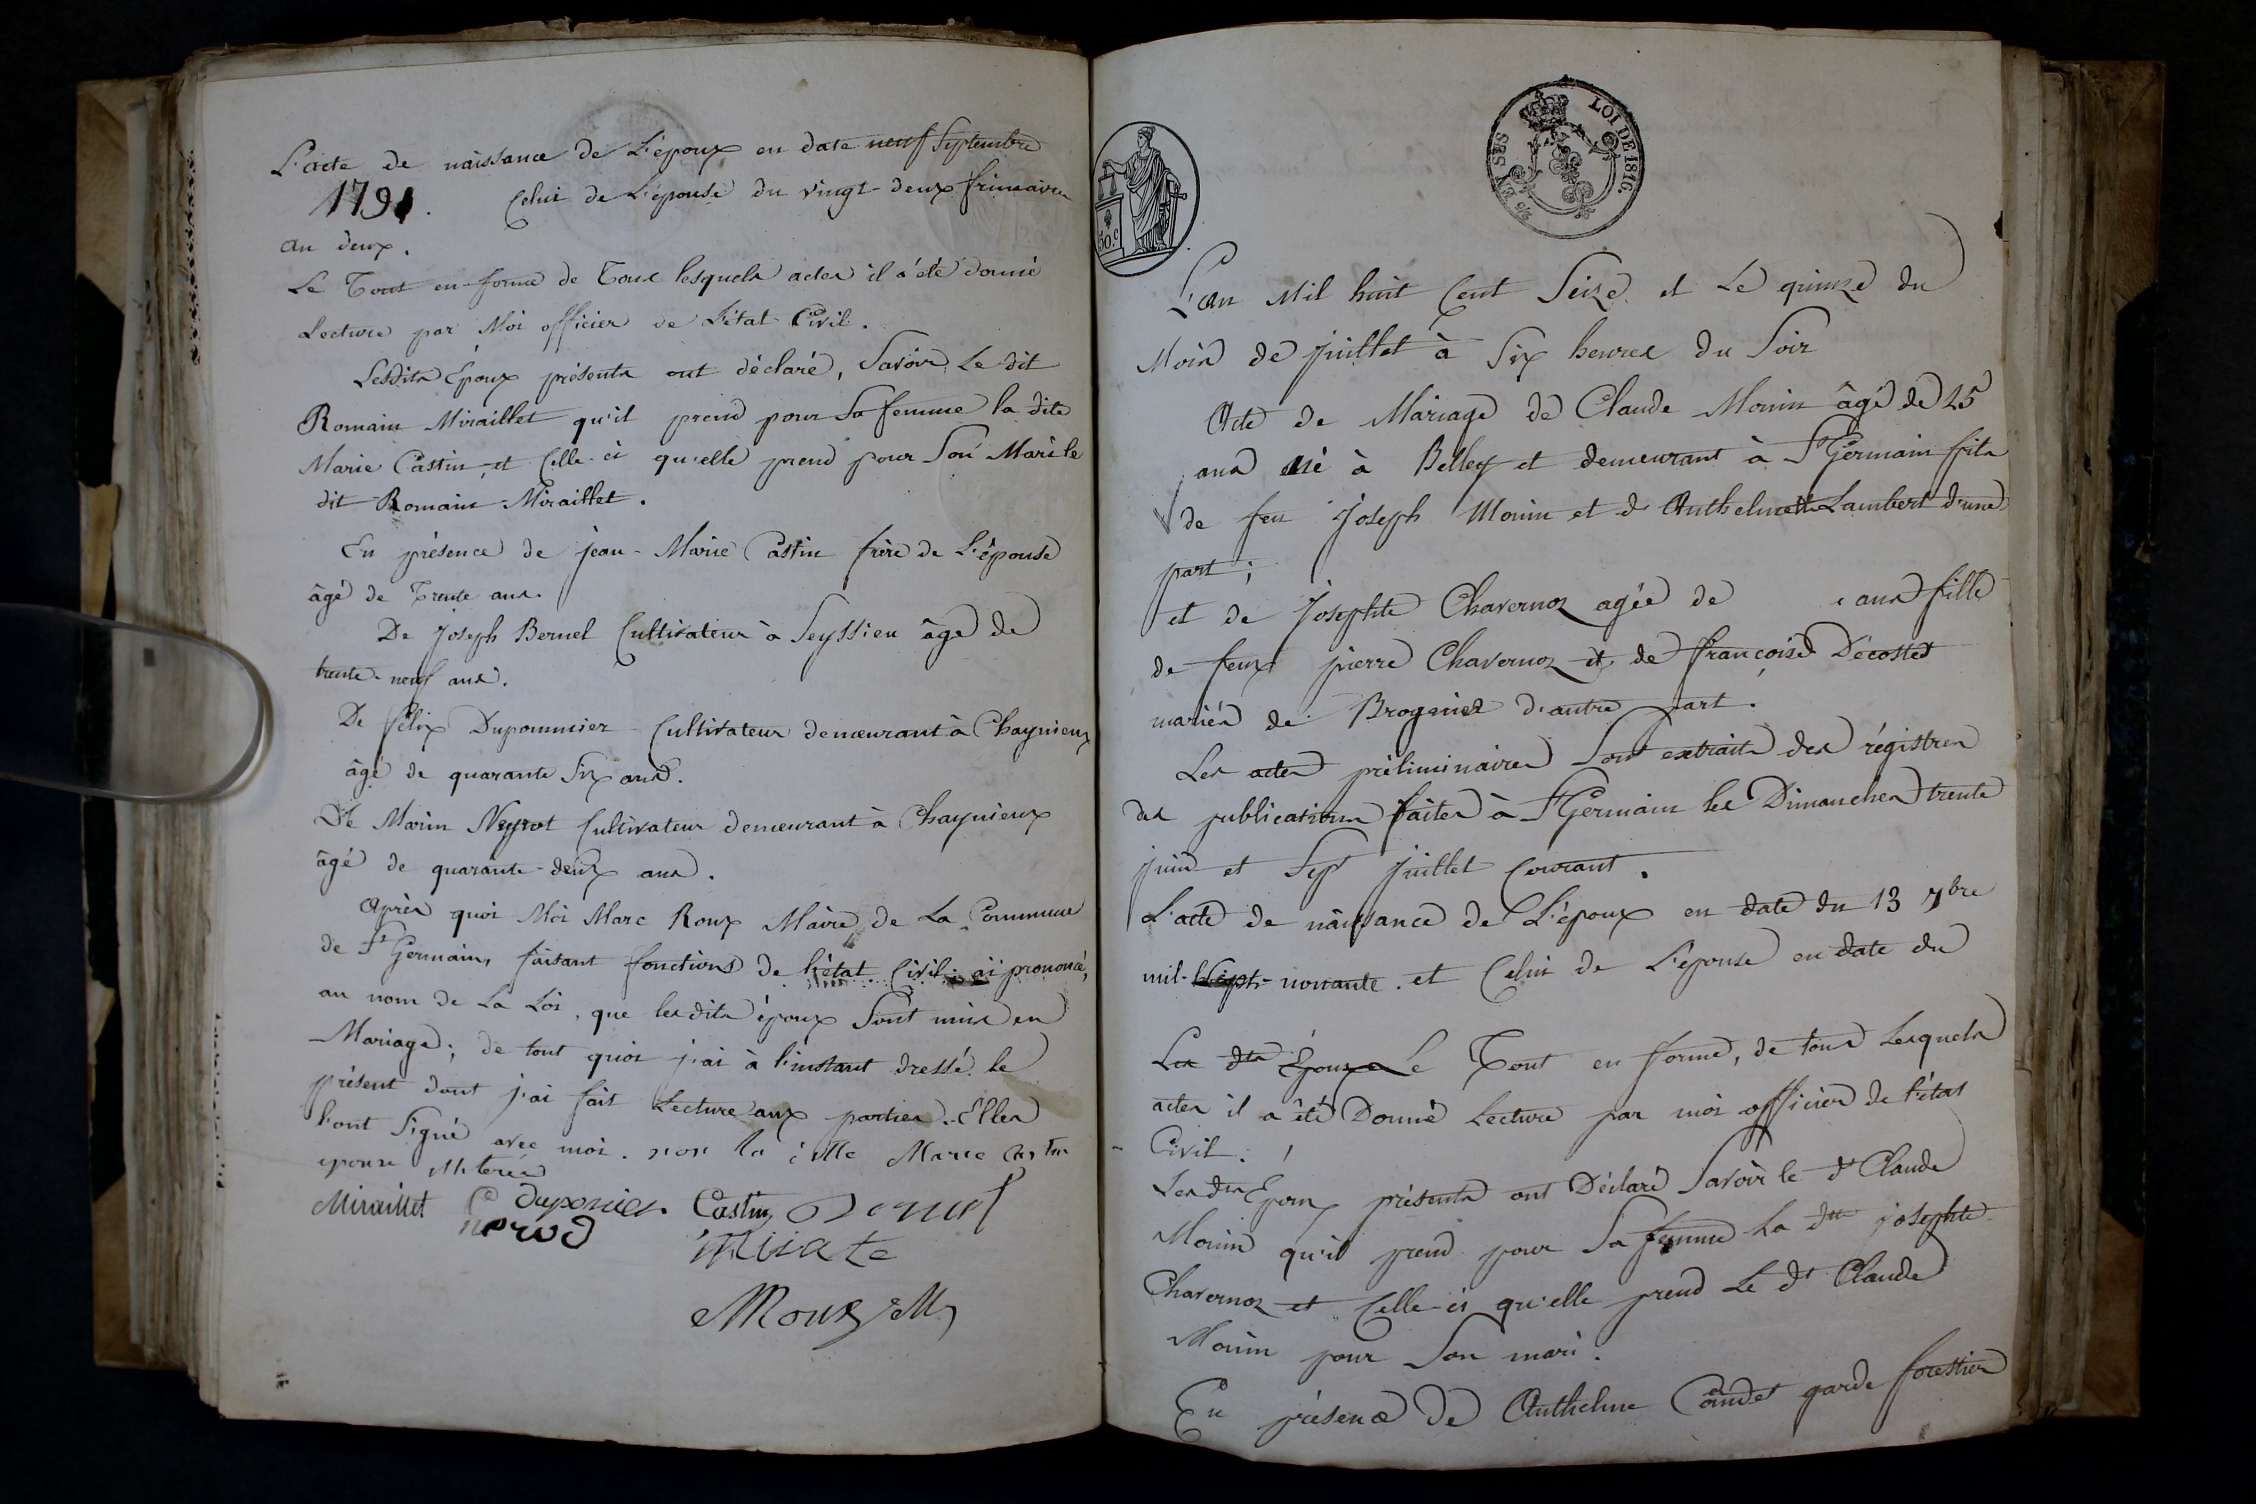 L'acte de naissance de L'époux en date neuf Septembre
1791. Celui de L'épouse du vingt-deux frimaire
an deux.
Le Tout en forme de Tous lesquels actes il a été donné
Lecture par Moi officier de L'état Civil.
Lesdits Époux présents ont déclaré, Savoir Le dit
Romain Miraillet qu'il prend pour Sa femme la dite
Marie Castin, et Celle-ci qu'elle prend pour Son Mari le
dit Romain Miraillet.
En présence de jean-Marie Castin frère de L'épouse
âgé de Trente ans.
De Joseph Bernel Cultivateur à Seyssieu âgé de
trente-neuf ans.
De félix Duponnier Cultivateur demeurant à Chaynieux
âgé de quarante Six ans.
De Marin Neyrot Cultivateur demeurant à Chaynieux
âgé de quarante-deux ans.
Après quoi Moi Marc Roux Maire de La Commune
de St Germain, faisant fonctions de l'état Civil ai prononcé,
au nom de La Loi, que lesdits époux Sont unis en
Mariage; de tout quoi j'ai à l'instant dressé le
présent dont j'ai fait Lecture aux parties. Elles
l'ont Signé avec moi. non la Marie Castin
epouse
Miraillet duponier Castin
nerod
MRoux M
50.c
LOI DE 1816.
EN SUS
L'an Mil huit Cent Seize et Le quinze du
Mois de Juillet à Six heures du Soir
Acte de Mariage de Claude Monin âgé de 25
ans né à Belley et demeurant à St Germain fils
de feu Joseph Monin et d' Anthelmette Lambert d'une
part;
et de Josephte Chavernoz agée de ans fille
de feux pierre Chavernoz et de françoise Décostes
mariés de Brogniez d'autre part.
Les actes préliminaires Sont extraits des régistres
des publications faites à St Germain les Dimanches trente
juin et Sept juillet Courant.
L'acte de naissance de L'époux en date du 13 7bre
mil-Sept-nonante. et Celui de L'épouse en date du
Les dts Époux Le Tout en forme, de tous Lesquels
actes il a été Donné Lecture par moi officier de l'état
Civil.
Les dts Époux présents ont Déclaré Savoir le dt Claude
Monin qu'il prend pour Sa femme La dtte josephte
Chavernoz et Celle-ci qu'elle prend Le dt Claude
Monin pour Son mari.
En présence de Anthelme garde forestier